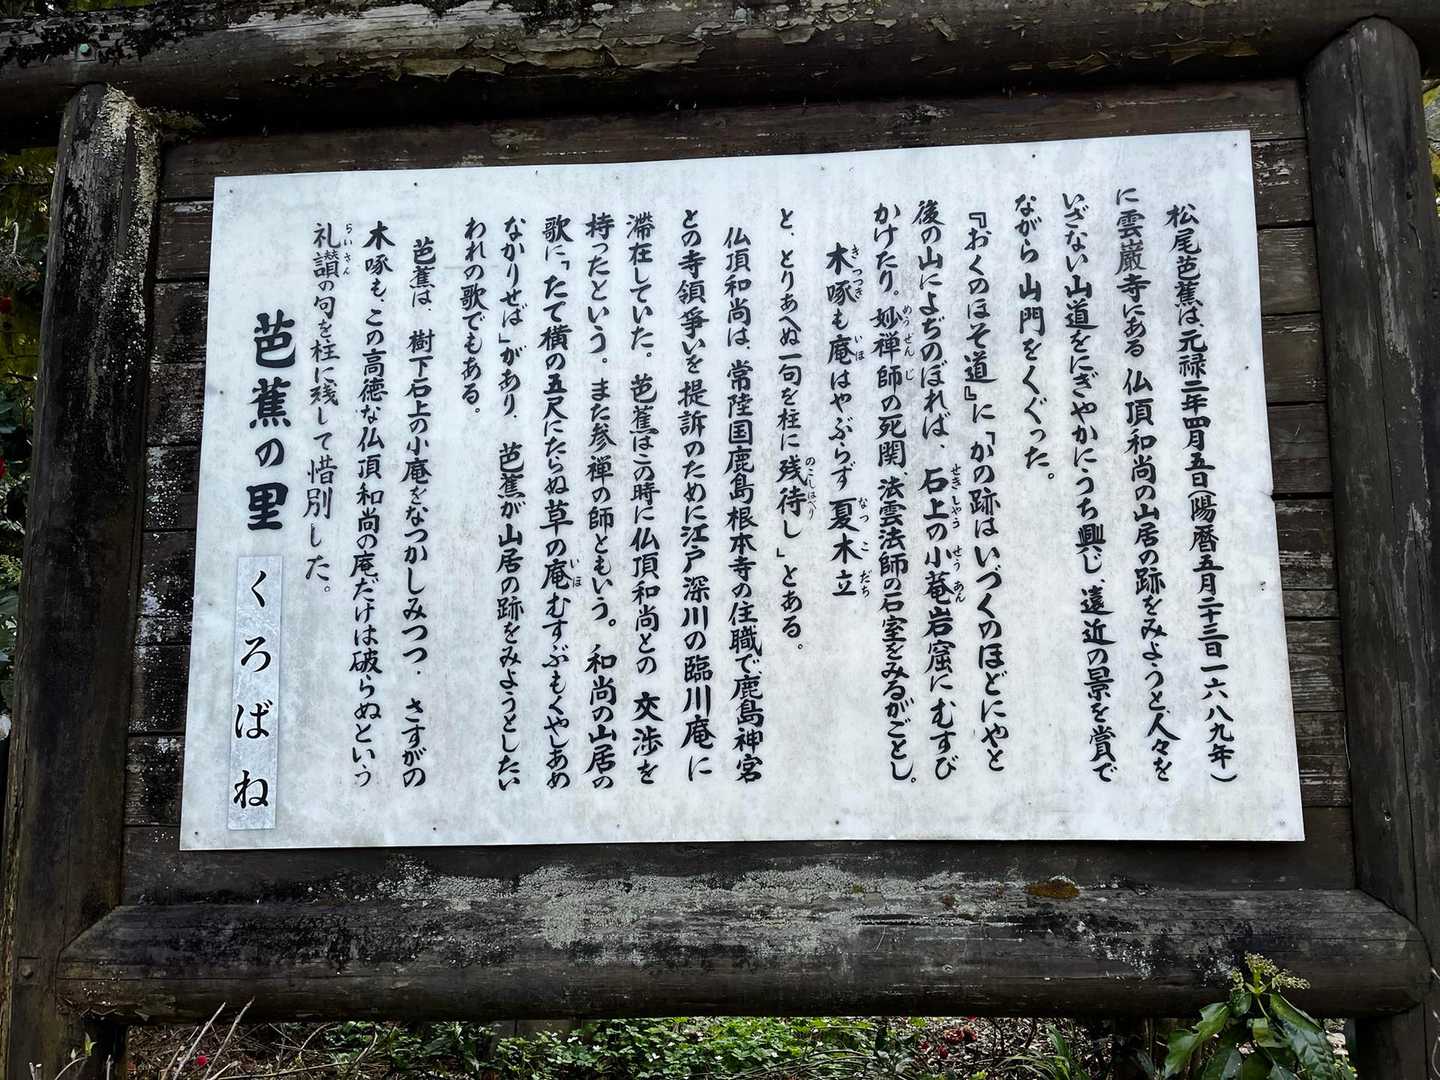 松尾芭蕉は、元禄二年四月五日(陽暦五月二十三日一六八九年)
に雲巌寺にある仏頂和尚の山居の跡をみようと、人々を
いざない山道をにぎやかにうち興じ、遠近の景を賞で
ながら山門をくぐった。
『おくのほそ道』に「かの跡はいづくのほどにやと
後の山によぢのぼれば、石上の小菴岩窟にむすび
かけたり。妙禅師の死関、法雲法師の石室をみるがごとし。
木啄も庵はやぶらず夏木立
と、とりあへぬ一句を柱に残待し」とある。
仏頂和尚は、常陸国鹿島根本寺の住職で、鹿島神宮
との寺領爭いを提訴のために江戸深川の臨川庵に
滞在していた。芭蕉はこの時に仏頂和尚との交渉を
持ったという。また参禅の師ともいう。和尚の山居の
歌に「たて横の五尺にたらぬ草の庵むすぶもくやしあめ
なかりせば」があり、芭蕉が山居の跡をみようとしたい
われの歌でもある。
芭蕉は、樹下石上の小庵をなつかしみつつ、さすがの
木啄も、この高徳な仏頂和尚の庵だけは破らぬという
礼讃の句を柱に残して惜別した。
芭蕉の里 くろばね